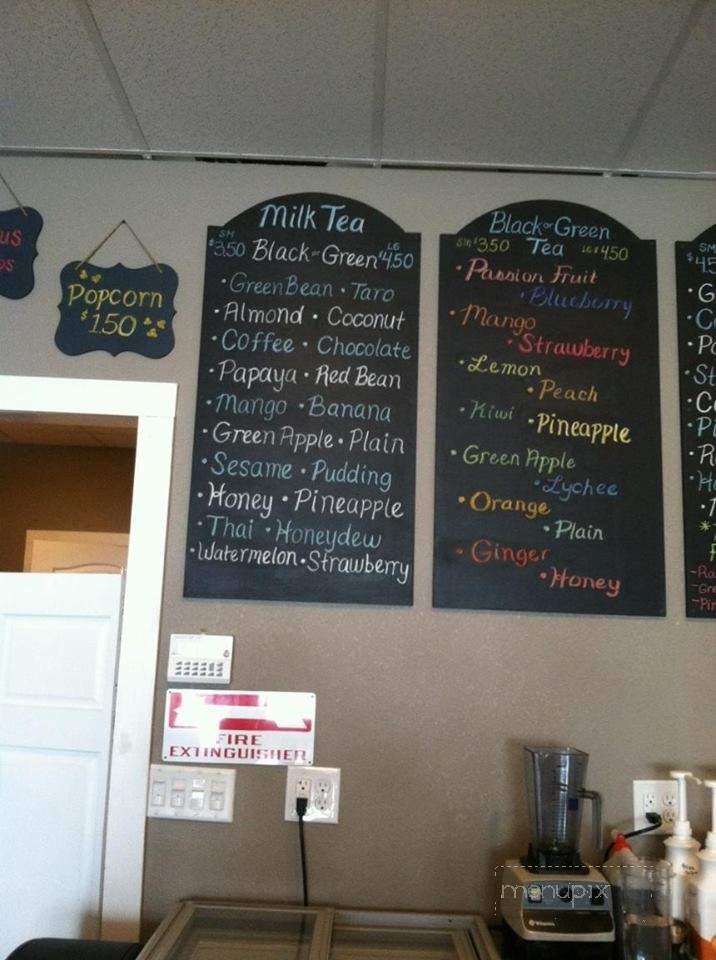 US
Popcorn
$1.50
Milk Tea
SM LG
$3.50 Black or Green $4.50
• Green Bean • Taro
• Almond • Coconut
• Coffee • Chocolate
• Papaya • Red Bean
• Mango • Banana
• Green Apple • Plain
• Sesame • Pudding
• Honey • Pineapple
• Thai • Honeydew
• Watermelon • Strawberry
Black or Green
SM $3.50 Tea LG $4.50
• Passion Fruit
• Blueberry
• Mango
• Strawberry
• Lemon
• Peach
• Kiwi
• Pineapple
• Green Apple
• Lychee
• Orange
• Plain
• Ginger
• Honey
SM
FIRE
EXTINGUISHER
menupix